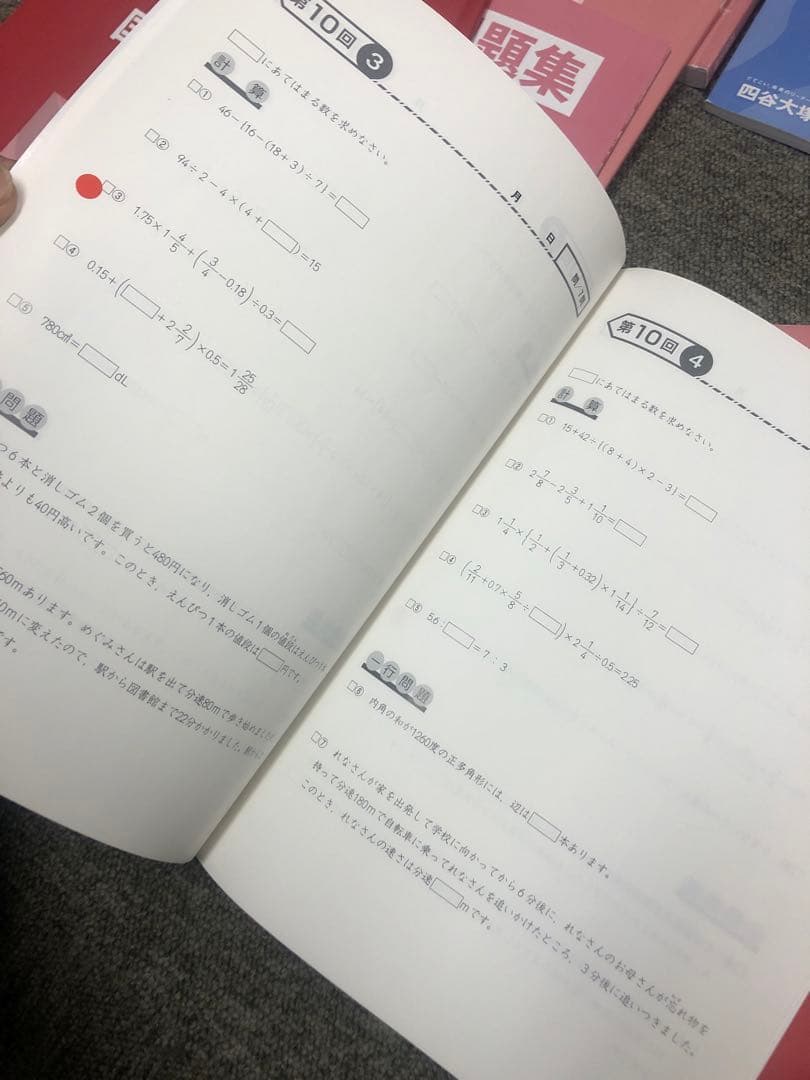 第10回 3
□にあてはまる数を求めなさい。
計算
□① 46－{16－(18＋3)÷7}＝□
□② 94÷2－4×(4＋□)＝15
□③ 1.75×1 4/5＋(3/4－0.18)÷0.3＝□
□④ 0.15＋(□＋2 2/7)×0.5＝1 25/28
□⑤ 780㎤＝□dL
問題
つ6本と消しゴム2個を買うと480円になり、消しゴム1個の値段はえんぴつ1
よりも40円高いです。このとき、えんぴつ1本の値段は□円です。
60mあります。めぐみさんは駅を出て分速80mで歩き始めましたが
0mに変えたので、駅から図書館まで22分かかりました。
です。
月 日
題集
四谷大塚
第10回 4
□にあてはまる数を求めなさい。
計算
□① 15＋42÷{(8＋4)×2－3}＝□
□② 2 7/8－2 3/5＋1 1/10＝□
□③ 1 1/4×{1/2＋(1/3＋0.32)×1 1/14}÷7/12＝□
□④ (2/11＋0.7×5/8÷□)×2 1/4÷0.5＝2.25
□⑤ 5.6：□＝7：3
一行問題
□⑥ 内角の和が1260度の正多角形には、辺は□本あります。
□⑦ れなさんが家を出発して学校に向かってから6分後に、れなさんのお母さんが忘れ物を
持って分速180mで自転車に乗ってれなさんを追いかけたところ、3分後に追いつきました。
このとき、れなさんの速さは分速□mです。